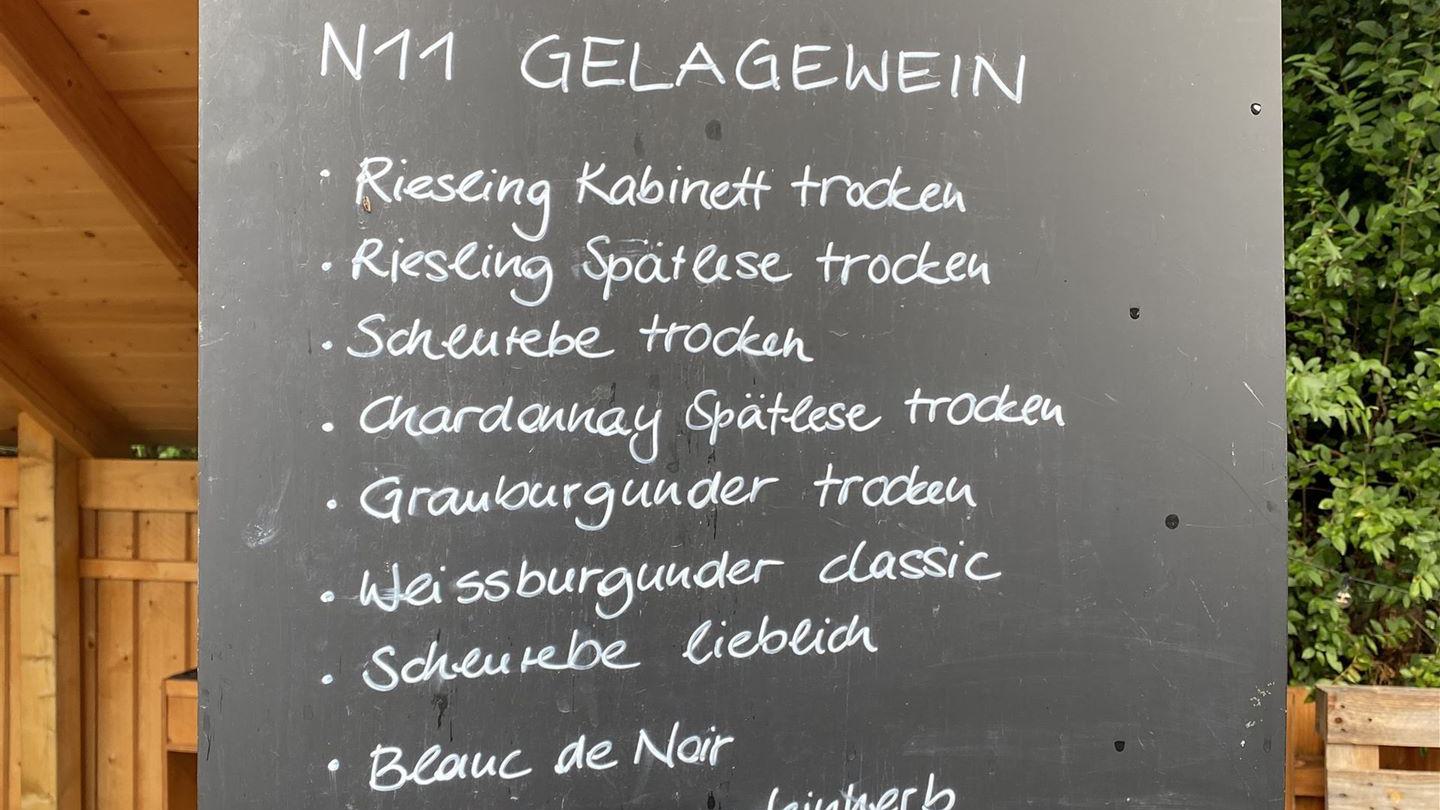 N11 GELAGEWEIN
· Riesling Kabinett trocken
· Riesling Spätlese trocken
· Scheurebe trocken
· Chardonnay Spätlese trocken
· Grauburgunder trocken
· Weissburgunder classic
· Scheurebe lieblich
· Blanc de Noir